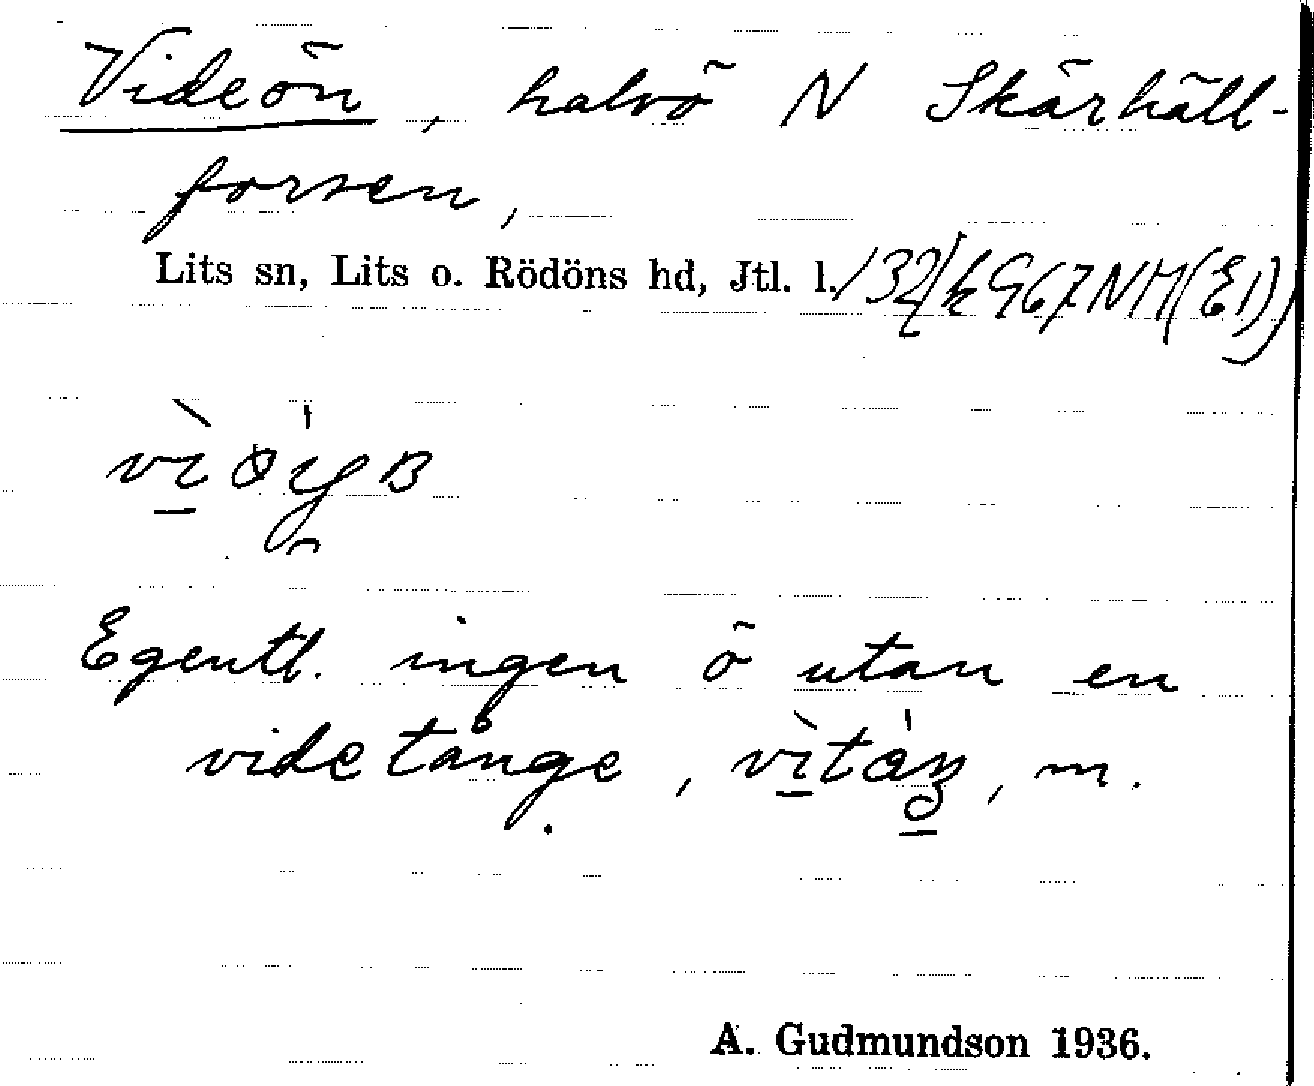 Videön, halvö N Skärhäll-
forsen,
Lits sn, Lits o. Rödöns hd, Jtl. l.
Egentl. ingen ö utan en
videtånge, m.
A. Gudmundson 1936.